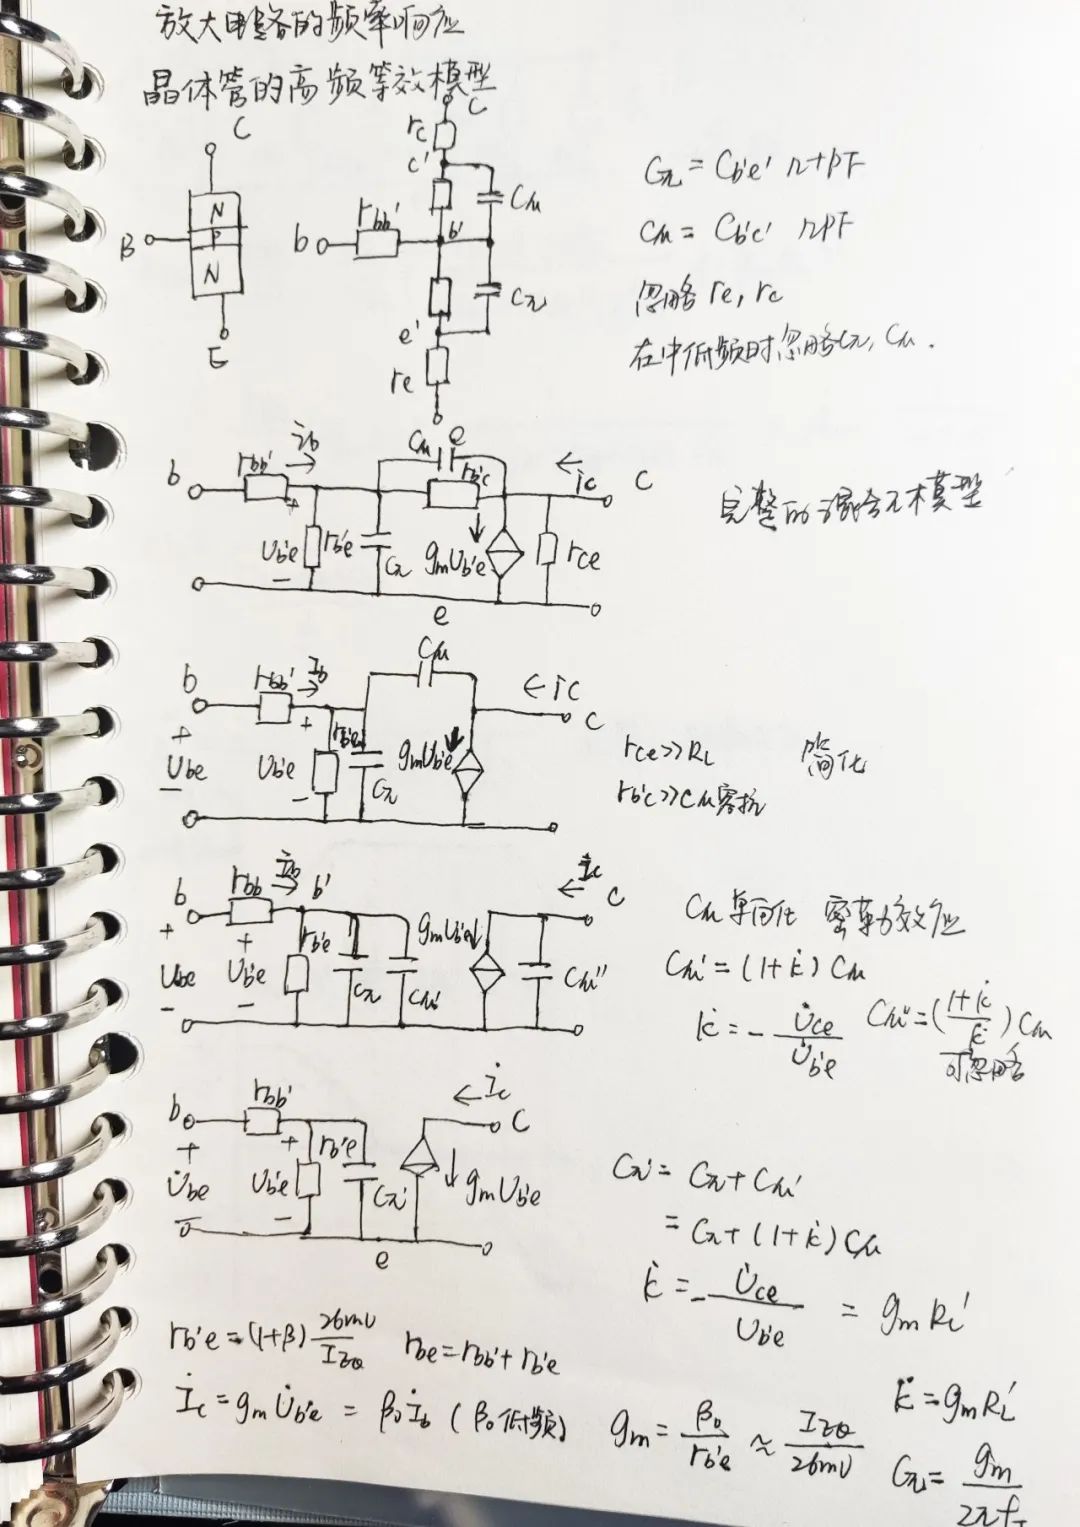 放大电路的频率响应
晶体管的高频等效模型
C
N
P
N
B
E
C
rc
c'
Cμ
rbb'
b
b'
Cπ
e'
re
e
Cπ = Cb'e' 几十PF
Cμ = Cb'c' 几PF
忽略 re, rc
在中低频时忽略Cπ, Cμ.
b
rbb'
ib
Cμ
rb'c
ic
C
+
Ub'e
-
rb'e
Cπ
gmUb'e
rce
e
完整的混合π模型
b
rbb'
Ib
Cμ
ic
C
+
Ube
-
+
Ub'e
-
rb'e
Cπ
gmUb'e
rce>>RL 简化
rb'c>>Cμ容抗
b
rbb'
İb
b'
İc
C
+
Ube
-
+
U̇b'e
-
rb'e
Cπ
Cμ'
gmUb'e
Cμ''
Cμ单向化 密勒效应
Cμ' = (1+K̇) Cμ
K̇ = - U̇ce / U̇b'e
Cμ'' = (1+K̇ / K̇) Cμ
可忽略
b
rbb'
İc
C
+
U̇be
-
+
Ub'e
-
rb'e
Cπ'
gmUb'e
e
Cπ' = Cπ + Cμ'
= Cπ + (1+K̇) Cμ
K̇ = - U̇ce / Ub'e = gmRL'
rb'e = (1+β) 26mV / IEQ rbe = rbb' + rb'e
İc = gmU̇b'e = β0İb (β0低频)
gm = β0 / rb'e ≈ IEQ / 26mV
K̇ = gmRL'
Cπ = gm / 2πfT